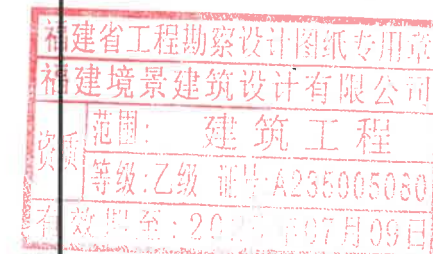 福建省工程勘察设计图纸专用章
福建境景建筑设计有限公司
资质
范围: 建筑工程
等级:乙级 证书:A235005060
有效期至:202 年07月09日